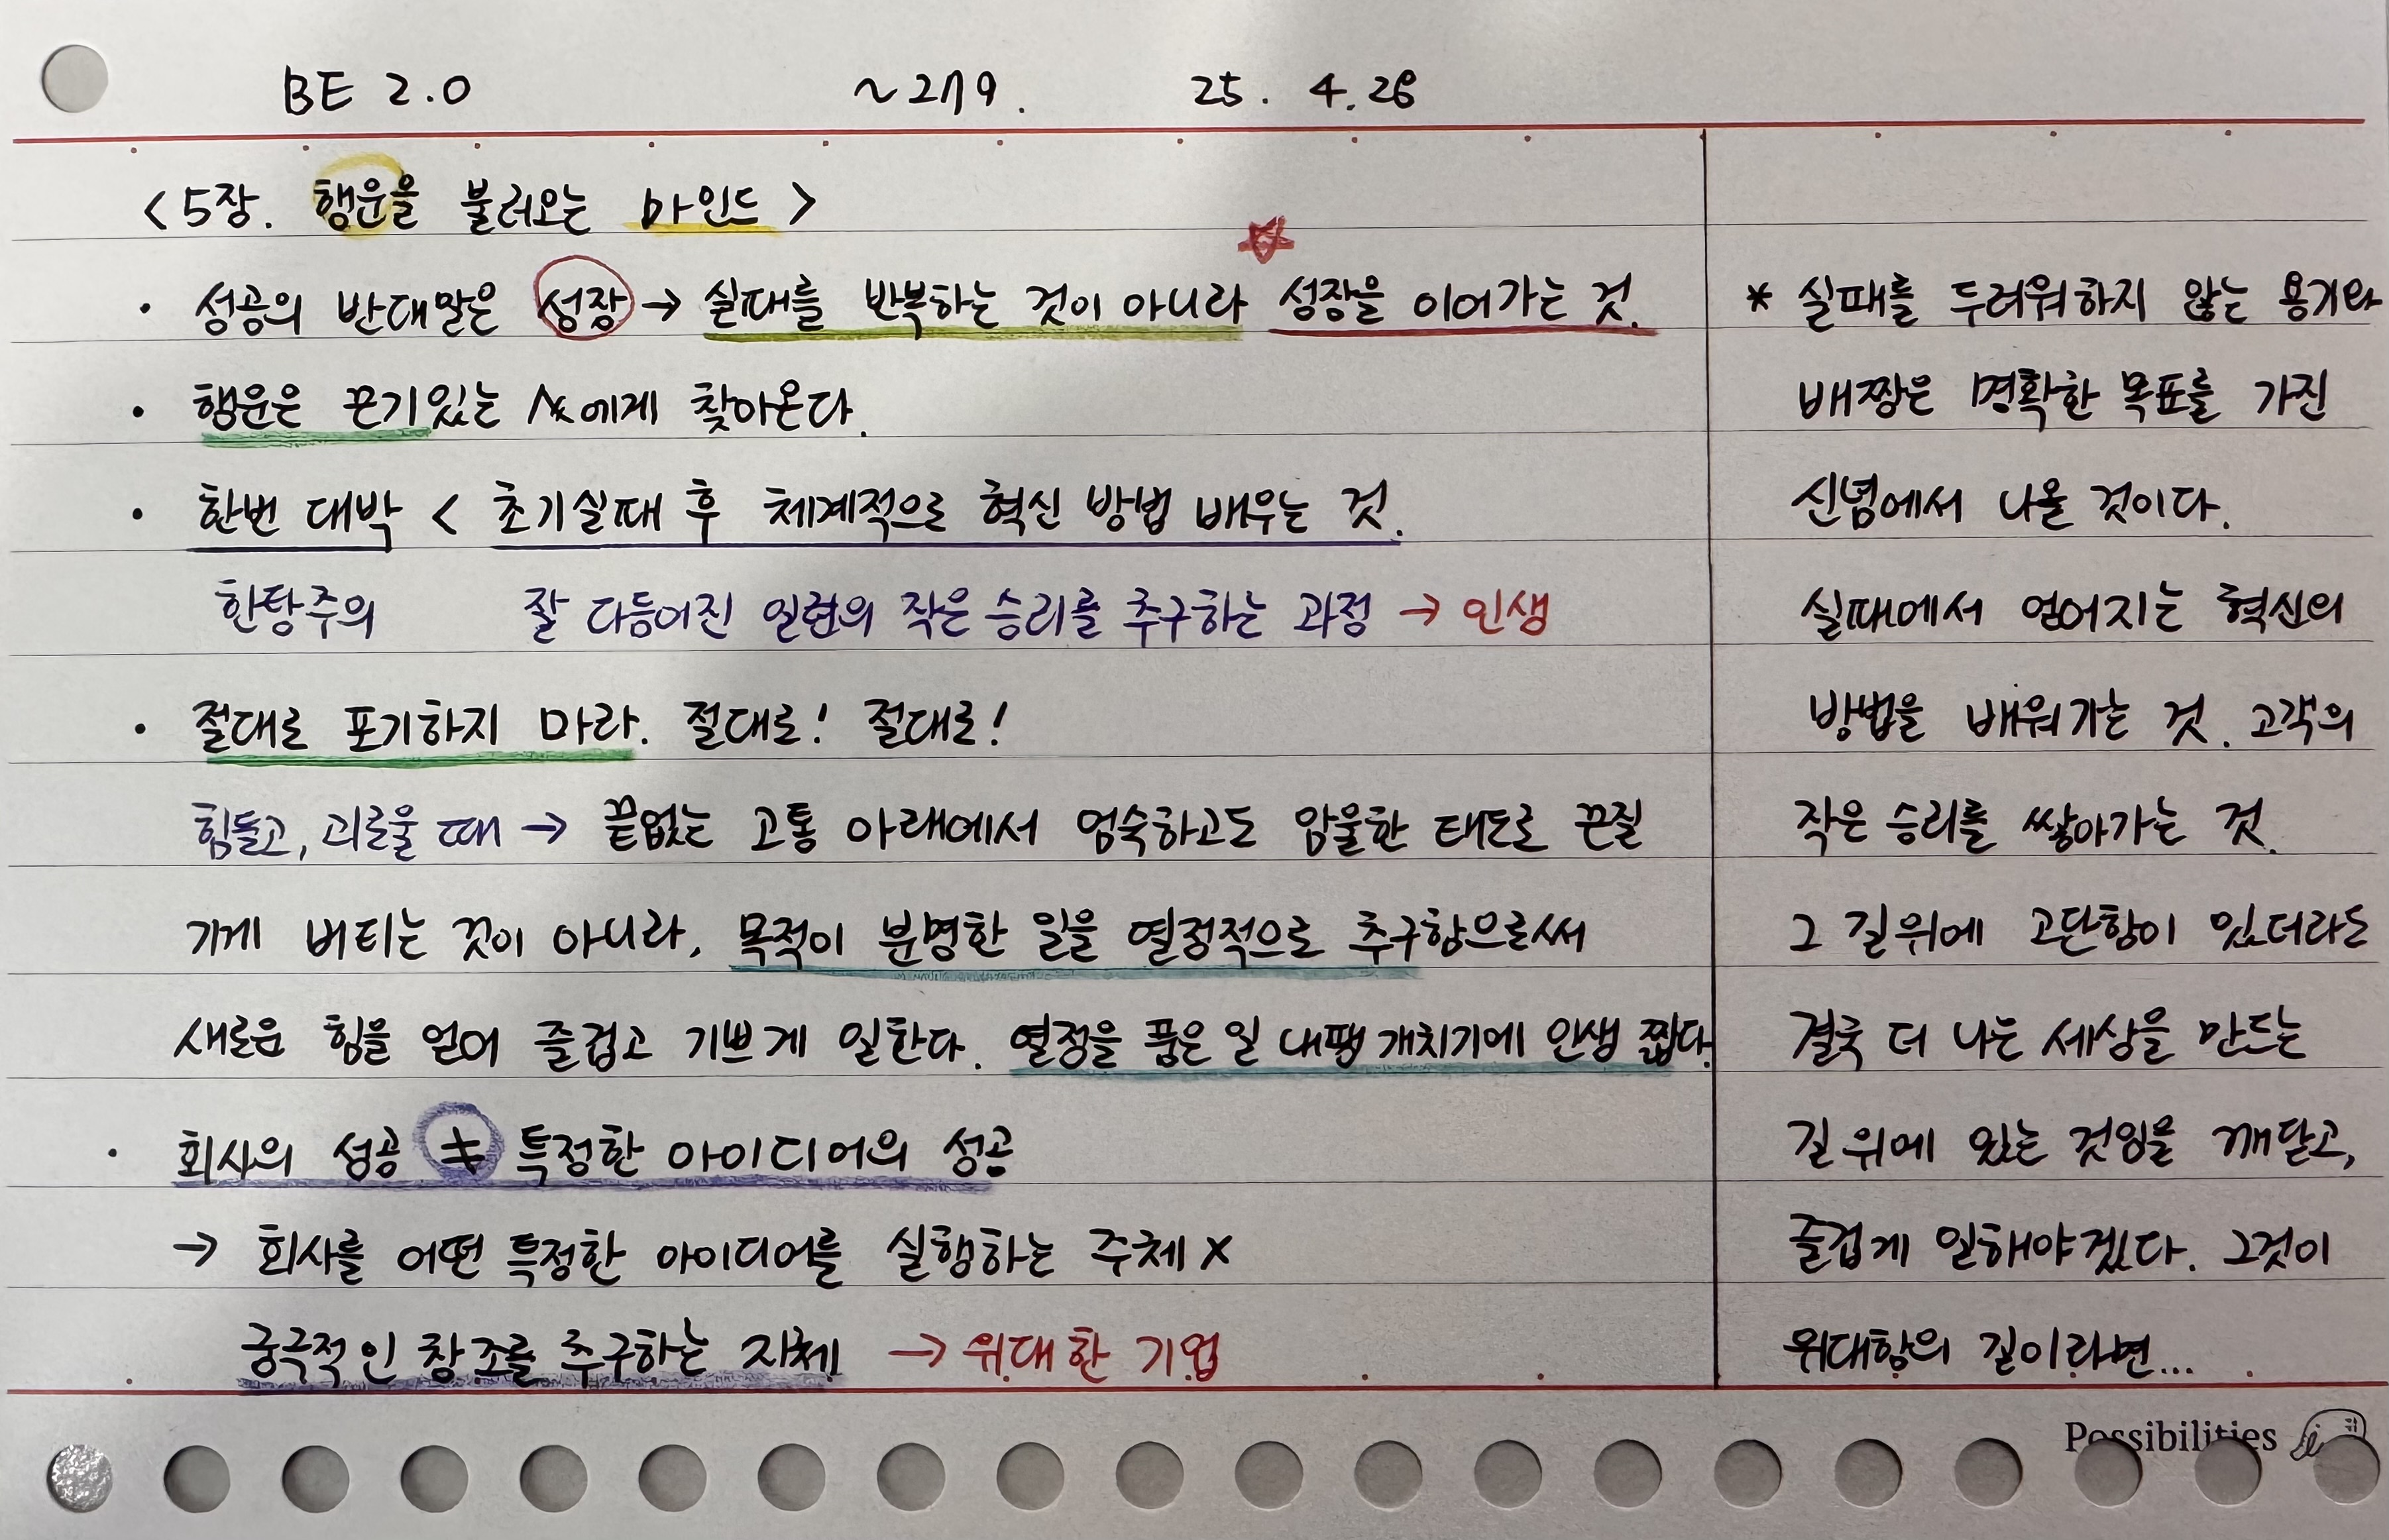 BE 2.0 ~279. 25. 4. 28
<5장. 행운을 불러오는 마인드>
· 성공의 반대말은 성장 → 실패를 반복하는 것이 아니라 성장을 이어가는 것.
· 행운은 끈기있는 에게 찾아온다.
· 한번 대박 < 초기실패 후 체계적으로 혁신 방법 배우는 것.
한탕주의 잘 다듬어진 일련의 작은 승리를 추구하는 과정 → 인생
· 절대로 포기하지 마라. 절대로! 절대로!
힘들고, 괴로울 때 → 끝없는 고통 아래에서 엄숙하고도 암울한 태도로 끈질
기게 버티는 것이 아니라, 목적이 분명한 일을 열정적으로 추구함으로써
새로운 힘을 얻어 즐겁고 기쁘게 일한다. 열정을 품은 일 내팽개치기에 인생 짧다.
· 회사의 성공 ≠ 특정한 아이디어의 성공
→ 회사를 어떤 특정한 아이디어를 실행하는 주체 X
궁극적인 창조를 추구하는 자체 → 위대한 기업
* 실패를 두려워하지 않는 용기와
배짱은 명확한 목표를 가진
신념에서 나올 것이다.
실패에서 얻어지는 혁신의
방법을 배워가는 것. 고객의
작은 승리를 쌓아가는 것.
그 길위에 고단함이 있더라도
결국 더 나은 세상을 만드는
길 위에 있는 것임을 깨닫고,
즐겁게 일해야겠다. 그것이
위대함의 길이라면...
Possibilities